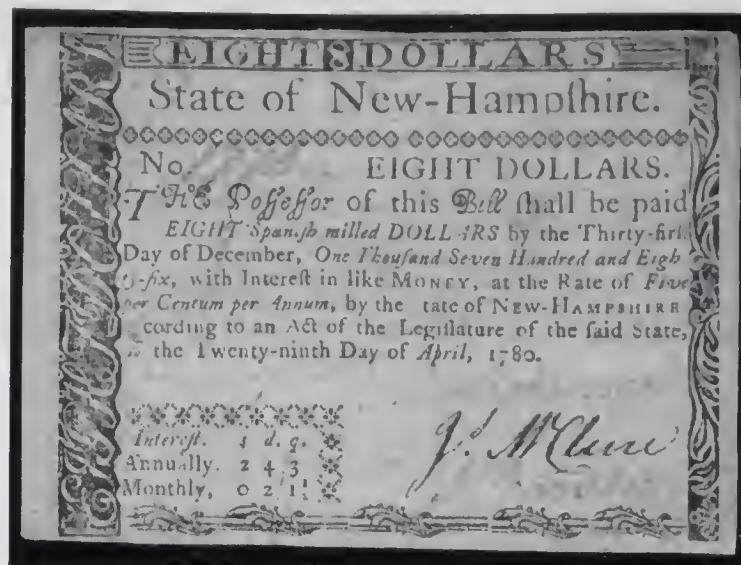 EIGHT 8 DOLLARS
State of New-Hampſhire.
No. EIGHT DOLLARS.
THE Poſſeſſor of this Bill ſhall be paid
EIGHT Spaniſh milled DOLLARS by the Thirty-firſt
Day of December, One Thouſand Seven Hundred and Eigh
ty-ſix, with Intereſt in like MONEY, at the Rate of Five
per Centum per Annum, by the tate of NEW-HAMPSHIRE
cording to an Act of the Legiſlature of the ſaid State,
the Twenty-ninth Day of April, 1780.
Intereſt. s d. q.
Annually. 2 4 3
Monthly, 0 2 1½
Js McClure